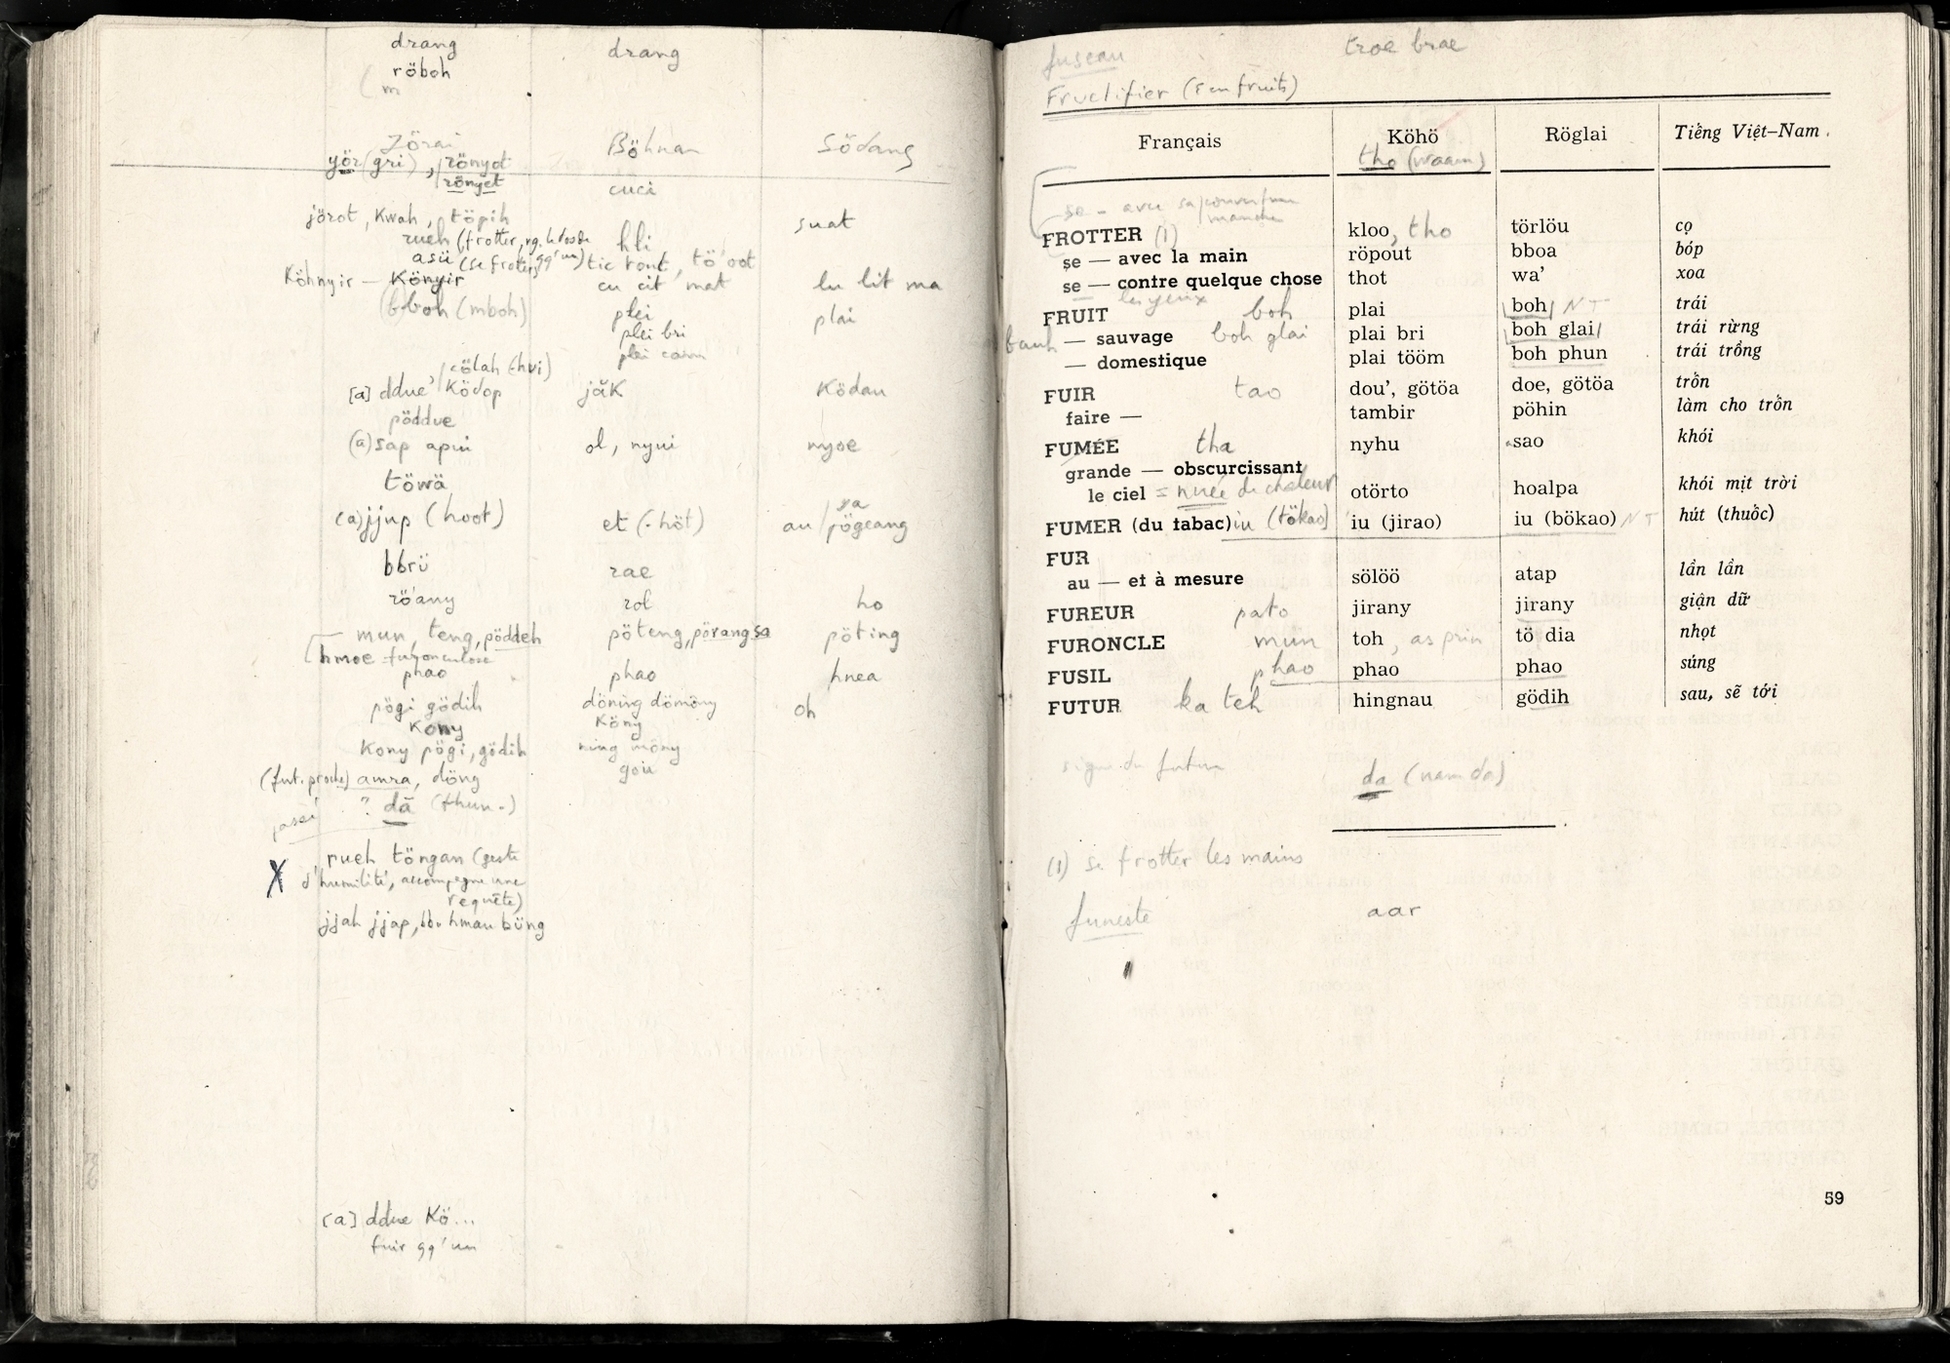 drang drang
röboh
Jörai Böhnan Södang
yör (gri), rönyot
rönyet cuci
jörot, Kwah, töpih suat
rueh (frotter, hli
asü tic ront, tö'oot
Köhnyir — Könyir cu cit mat lu lit ma
bboh (mboh) plei plai
plei bri
cölah (hui)
[a] ddue' Ködop jăK Ködau
pöddue
(a) sap apui ol, nyui nyoe
töwä
(a) jjup (hoot) et (-höt) au / pögeang
bbrü rae
rö'any rol ho
mun, teng, pöddeh pöteng, pörang sa pöting
hmoe - furonculose
phao phao hnea
pögi gödih döning dömöny oh
Kony Köny
Kony pögi, gödih ning möny
(fut. proche) amra, döng goiu
? dä (thun-)
X rueh töngan (geste
d'humilité, accompagne une
requête)
jjah jjap, hman büng
[a] ddue Kö...
fuir qq'un
fuseau troe brae
Fructifier (s en fruits)
Français Köhö Röglai Tiếng Việt–Nam
tho (waam)
se – avec sa
manche
FROTTER (1) kloo, tho törlöu cọ
se — avec la main röpout bboa bóp
se — contre quelque chose thot wa' xoa
les yeux
FRUIT boh plai boh NT trái
— sauvage boh glai plai bri boh glai trái rừng
— domestique plai tööm boh phun trái trồng
FUIR tao dou', götöa doe, götöa trốn
faire — tambir pöhin làm cho trốn
FUMÉE tha nyhu sao khói
grande — obscurcissant
le ciel = nuée de chaleur otörto hoalpa khói mịt trời
FUMER (du tabac) iu (tökao) iu (jirao) iu (bökao) NT hút (thuốc)
FUR
au — et à mesure sölöö atap lần lần
FUREUR pato jirany jirany giận dữ
FURONCLE mun toh, as prin tö dia nhọt
FUSIL phao phao phao súng
FUTUR ka teh hingnau gödih sau, sẽ tới
signe du futur da (nam da)
(1) se frotter les mains
funeste aar
59